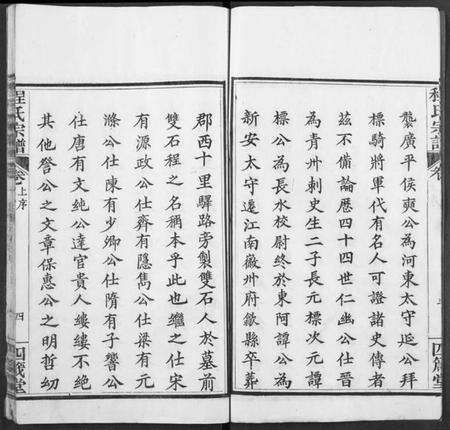 程氏宗譜
卷
四箴堂
襲廣平侯奭公為河東太守延公拜
標騎將軍代有名人可證諸史傳者
茲不備論歷四十四世仁幽公仕晉
為青州刺史生二子長元標次元譚
標公為長水校尉終於東阿譚公為
新安太守遂江南徽州府歙縣卒葬
郡西十里驛路旁製雙石人於墓前
雙石程之名稱本乎此也繼之仕宋
有源政公仕齊有隱雋公仕梁有元
滌公仕陳有少卿公仕隋有子響公
仕唐有文純公達官貴人縷縷不絕
其他譽公之文章保惠公之明哲幼
程氏宗譜
卷 上序
四
四箴堂